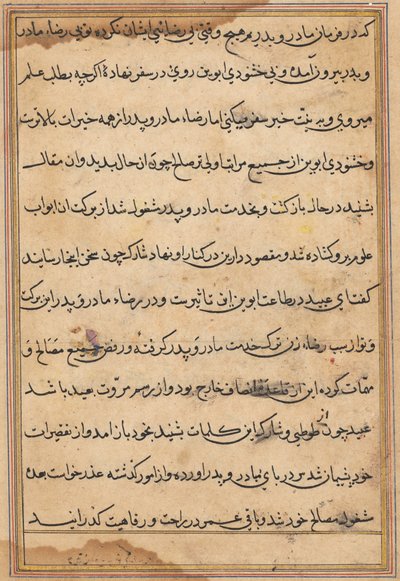 که در فرمان مادر و پدر هیچ وقتی بی رضائی ایشان نکرده تو بی رضاء مادر
و پدر بیرون آمده و بی خشنودی ابوین روی در سفر نهادهٔ اگرچه بطلب علم
میروی و به نیت خیر سفر میکنی اما رضاء مادر و پدر از همه خیرات بالاترست
و خشنودی ابوین از جمیع مراتب اولی تر صالح چون از حال بدید و ان مقال
بشنید در حال باز کشت و بخدمت مادر و پدر مشغول شد از برکت ان ابواب
علوم برو کشاده شد و مقصود دارین در کنار او نهاد شارک چون سخن اینجا رسانید
کفت ای عبید در طاعت ابوین این تاثیرست و در رضاء مادر و پدر این برکت
و تو از سبب رضاء زن ترک خدمت مادر و پدر کرفته و رفض جمیع مصالح و
مهمات کرده این از قاعدهٔ انصاف خارج بود و از رسم مروت بعید باشد
عبید چون از طوطی و شارک این کلمات بشنید بخود باز امد و از تقصیرات
خود پشیمان شد سر در پای مادر و پدر اورده و از امور کذشته عذر خواست بعده
مشغول مصالح خود شد و باقی عمر در راحت و رفاهیت کذرانید